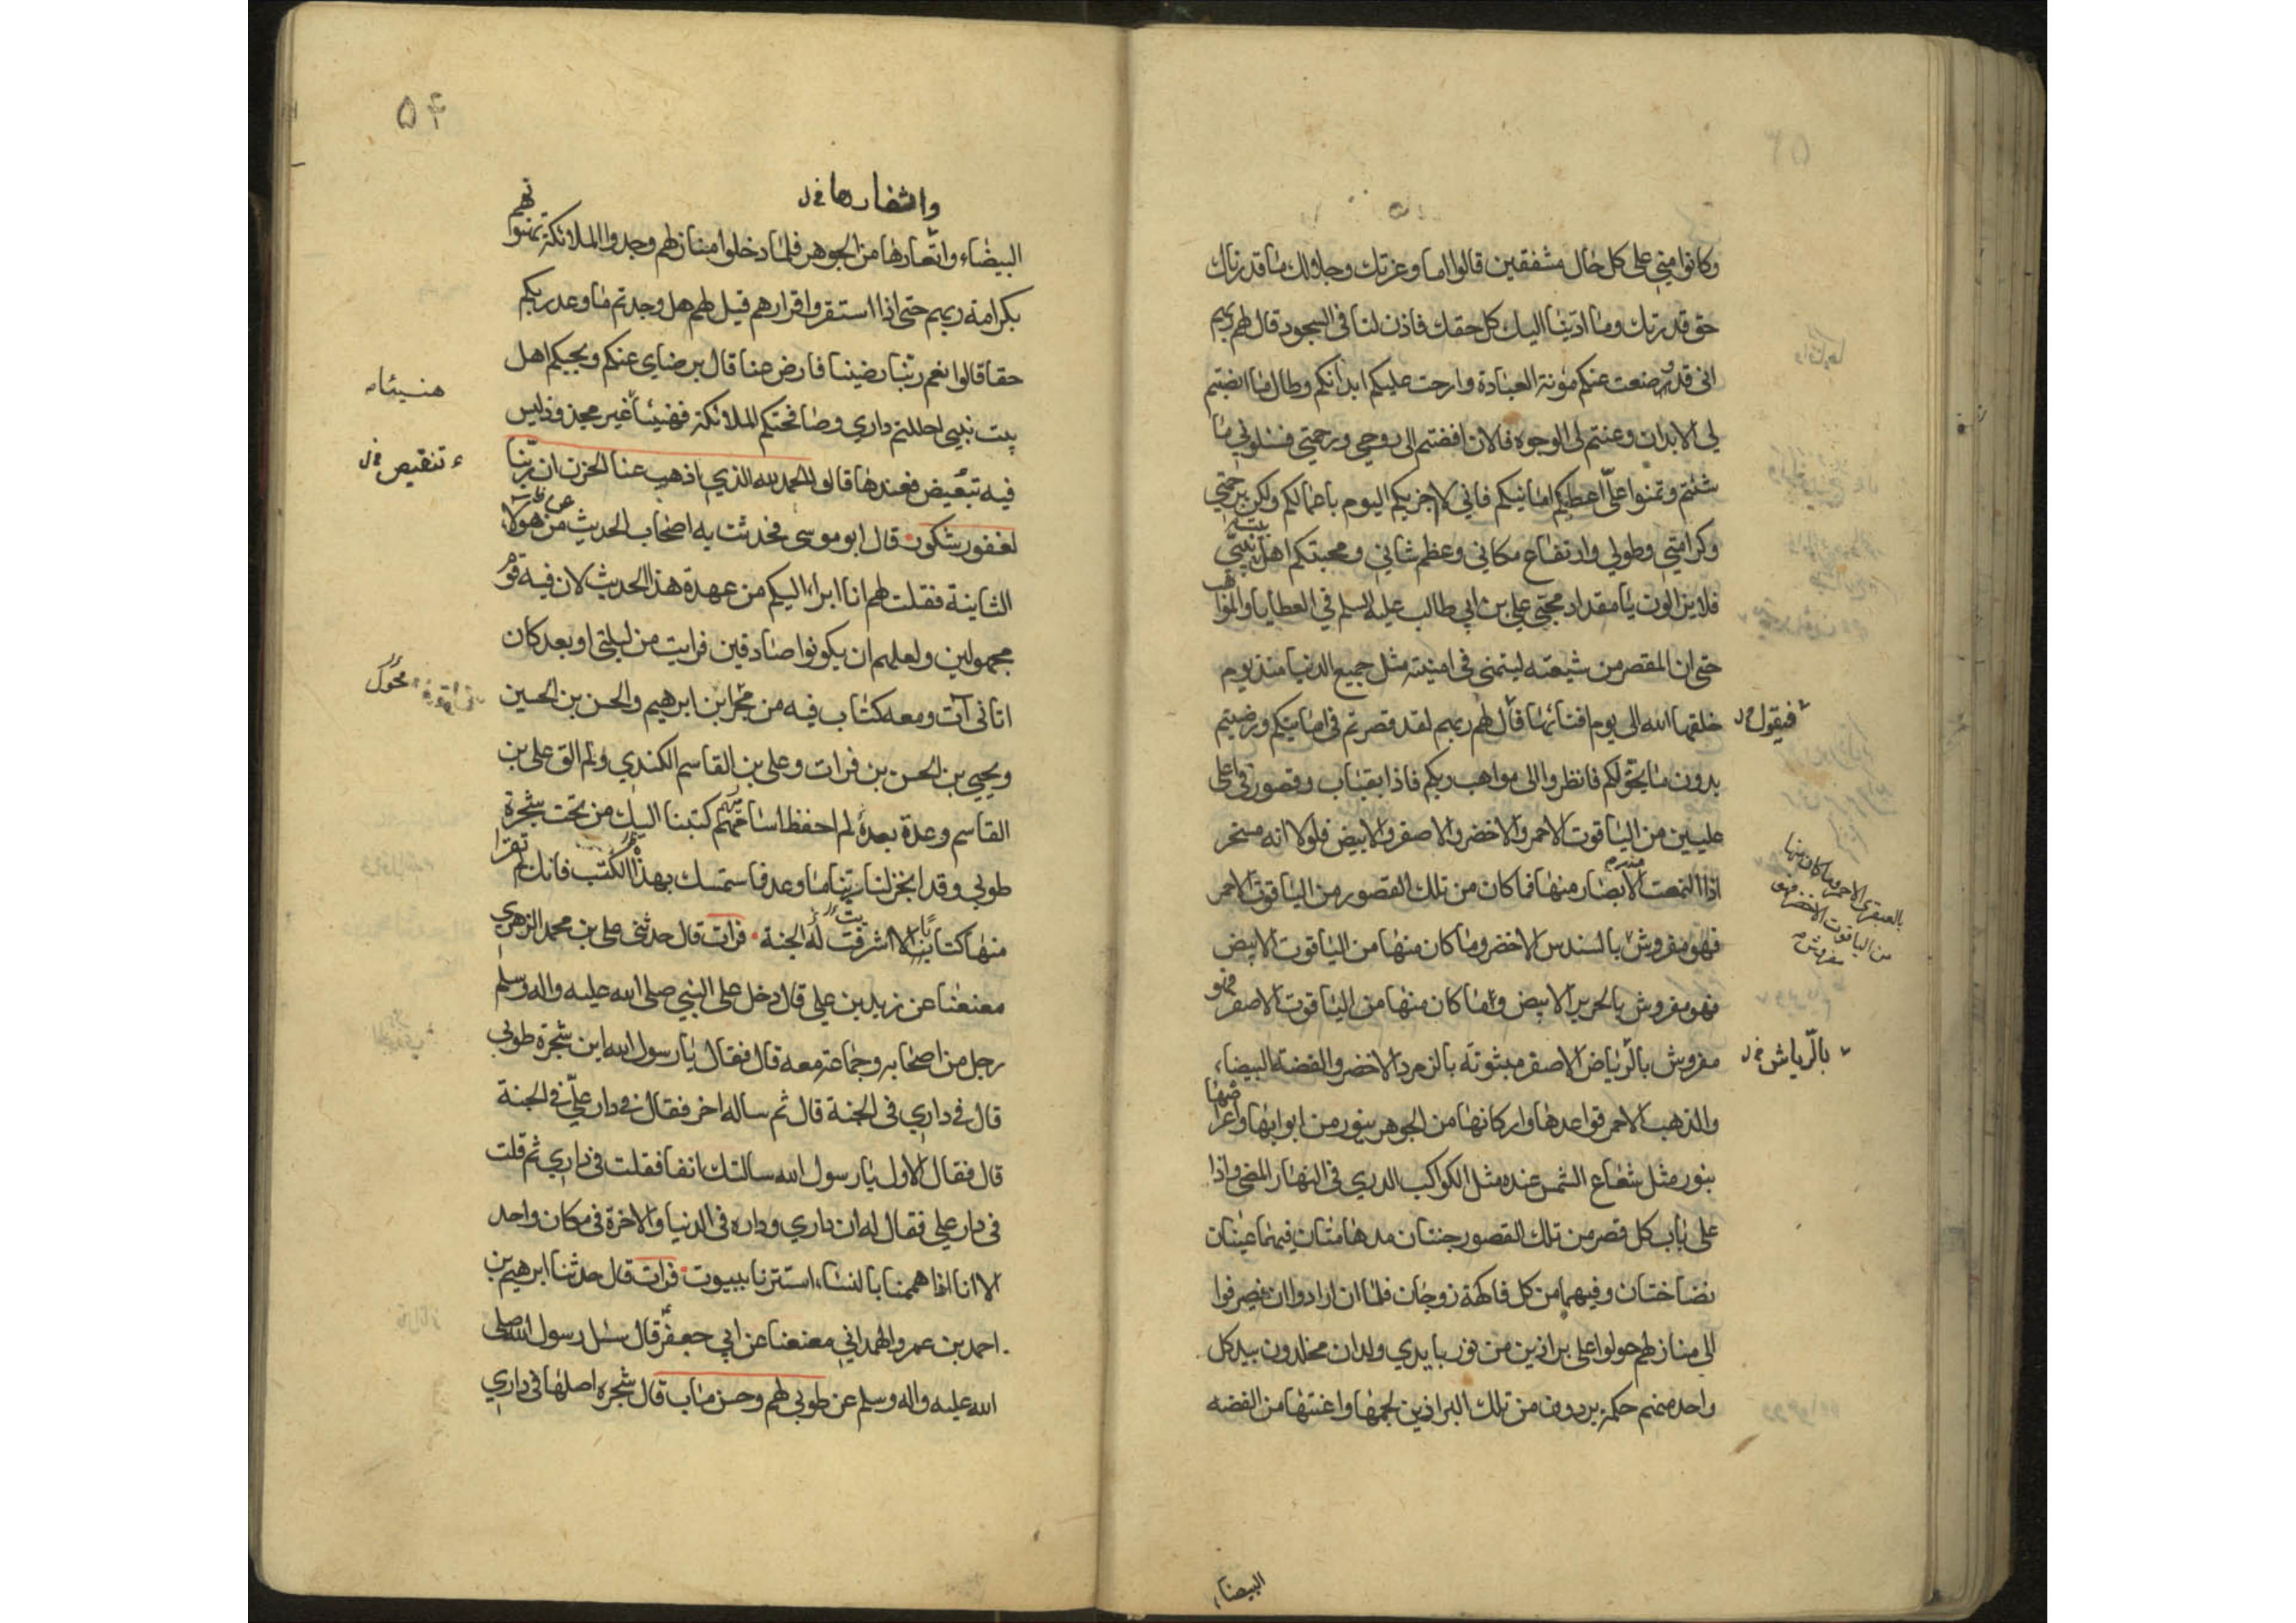 وكانوا مني على كل حال مشفقين قالوا اما وعزتك وجلالك ما قدرناك
حق قدرتك وما ادينا اليك كل حقك فاذن لنا في السجود قال لهم ربهم
اني قد وضعت عنكم مؤنة العبادة وارحت عليكم ابدانكم وطال ما انصبتم
لي الابدان وعنتم لي الوجوه فالان افضتم الى روحي ورحمتي فسلوني ما
شئتم وتمنوا علي اعطيكم امانيكم فاني لا اجزيكم اليوم باعمالكم ولكن برحمتي
وكرامتي وطولي وارتفاع مكاني وعظم شاني ومحبتكم اهل بيت نبيي
فلا يزالون يا مقداد محبي علي بن ابي طالب عليه السلم في العطايا والمواهب
حتى ان المقصر من شيعته ليتمنى في امنيته مثل جميع الدنيا منذ يوم
خلقها الله الى يوم افنائها قال لهم ربهم لقد قصرتم في امانيكم ورضيتم
فيقول ل
بدون ما يحق لكم فانظروا الى مواهب ربكم فاذا بقباب وقصور في اعلى
عليين من الياقوت الاحمر والاخضر والاصفر والابيض فلولا انه مسخر
اذا التمعت الابصار منها فما كان من تلك القصور من الياقوت الاحمر
بالعبقري الاحمر وما كان منها
من الياقوت الاخضر فهو
مفروش
فهو مفروش بالسندس الاخضر وما كان منها من الياقوت الابيض
فهو مفروش بالحرير الابيض وما كان منها من الياقوت الاصفر فهو
مفروش بالرياض الاصفر مبثوثة بالزمرد الاخضر والفضة البيضاء
بالرياش ل
والذهب الاحمر قواعدها واركانها من الجوهر ينور من ابوابها واعراضها
بنور مثل شعاع الشمس عنده مثل الكواكب الدري في النهار المضي واذا
على باب كل قصر من تلك القصور جنتان مدهامتان فيهما عينان
نضاختان وفيهما من كل فاكهة زوجان فلما ان ارادوا ان ينصرفوا
الى منازلهم حولوا على براذين من نور بايدي ولدان مخلدون بيد كل
واحد منهم حكمة برذون من تلك البراذين لجمها واعنتها من الفضة
البيضاء
۵۴
واثفارها ل
البيضاء واثفارها من الجوهر فلما دخلوا منازلهم وجدوا الملائكة تهنونهم
بكرامة ربهم حتى اذا استقروا قرارهم قيل لهم هل وجدتم ما وعد ربكم
حقا قالوا نعم ربنا رضينا فارض عنا قال برضاي عنكم وبحبكم اهل
بيت نبيي احللتم داري وصافحتكم الملائكة فهنيئا غير مجذوذ ليس
هنيئا
فيه تبغيض فعندها قالوا الحمد لله الذي اذهب عنا الحزن ان ربنا
تنقيص ل
لغفور شكور قال ابو موسى فحدثت به اصحاب الحديث من هولا
الثانية فقلت لهم انا ابراء اليكم من عهدة هذا الحديث لان فيه قوم
مجهولين ولعلهم ان يكونوا صادقين فرايت من ليلتي او بعد كان
اتاني آت ومعه كتاب فيه من مخر ابن ابرهيم والحسن بن الحسين
مخول
ويحيى بن الحسن بن فرات وعلي بن القاسم الكندي ولم الق علي بن
القاسم وعدة بعده لم احفظ اساميهم كتبنا اليك من تحت شجرة
طوبى وقد انجز لنا ربنا ما وعدنا فاستمسك بهذا الكتب فانك لم تقرا
منها كتابا الا اشرقت له الجنة فرات قال حدثني علي بن محمد الزهري
معنعنا عن زيد بن علي قال دخل على النبي صلى الله عليه واله وسلم
رجل من اصحابه وجماعة معه قال فقال يا رسول الله اين شجرة طوبى
قال في داري في الجنة قال ثم ساله اخر فقال في دار علي في الجنة
قال فقال الاول يا رسول الله سالتك انفا فقلت في داري ثم قلت
في دار علي فقال له ان داري وداره في الدنيا والاخرة في مكان واحد
الا انا اذا هممنا بالنساء استترنا ببيوت فرات قال حدثنا ابرهيم بن
احمد بن عمرو الهمداني معنعنا عن ابي جعفر قال سئل رسول الله صلى
الله عليه واله وسلم عن طوبى لهم وحسن ماب قال شجرة اصلها في داري